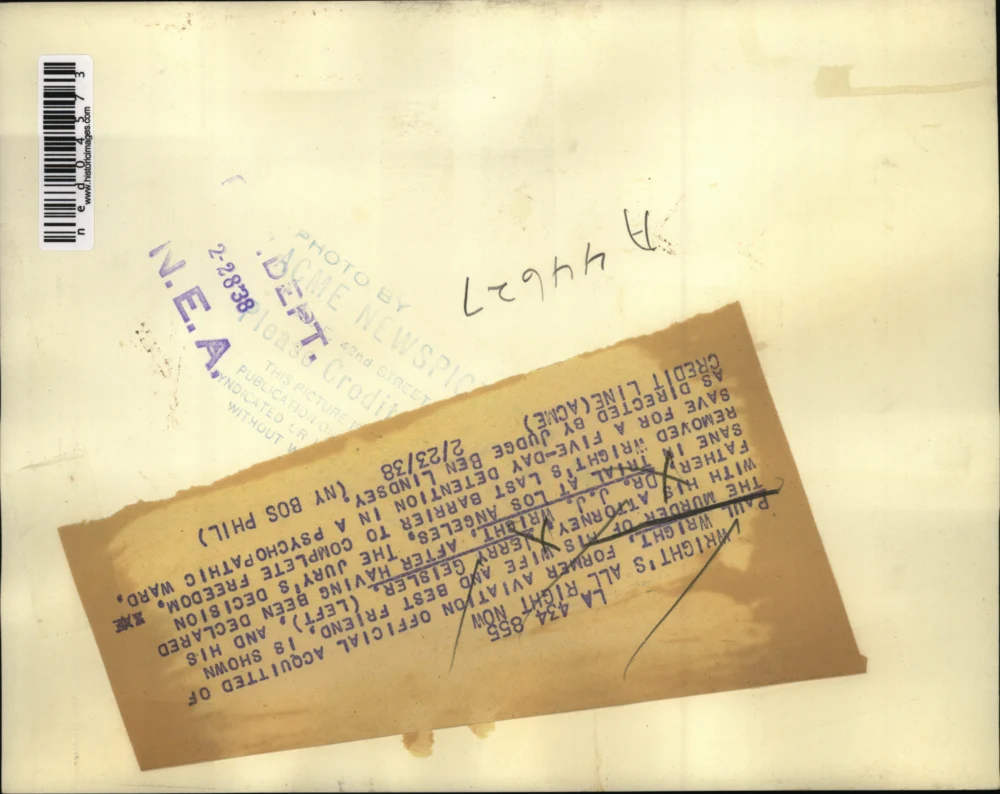 ned045773
www.historicimages.com
A 44627
N.E.A.
2-28'38
.DEPT.
PHOTO BY
ACME NEWSPIC
42nd STREET
Please Credit
THIS PICTURE
PUBLICATION
SYNDICATED OR
WITHOUT
LA 434 855
WRIGHT'S ALL RIGHT NOW
PAUL WRIGHT, FORMER AVIATION OFFICIAL ACQUITTED OF
THE MURDER OF HIS WIFE AND BEST FRIEND, IS SHOWN
WITH HIS ATTORNEY JERRY GEISLER, (LEFT), AND HIS
FATHER, DR. J.J. WRIGHT, AFTER HAVING BEEN DECLARED
SANE IN TRIAL AT LOS ANGELES. THE JURY'S DECISION
REMOVED WRIGHT'S LAST BARRIER TO COMPLETE FREEDOM,
SAVE FOR A FIVE-DAY DETENTION IN A PSYCHOPATHIC WARD,
AS DIRECTED BY JUDGE BEN LINDSEY
CREDIT LINE(ACME) 2/23/38 (NY BOS PHIL)